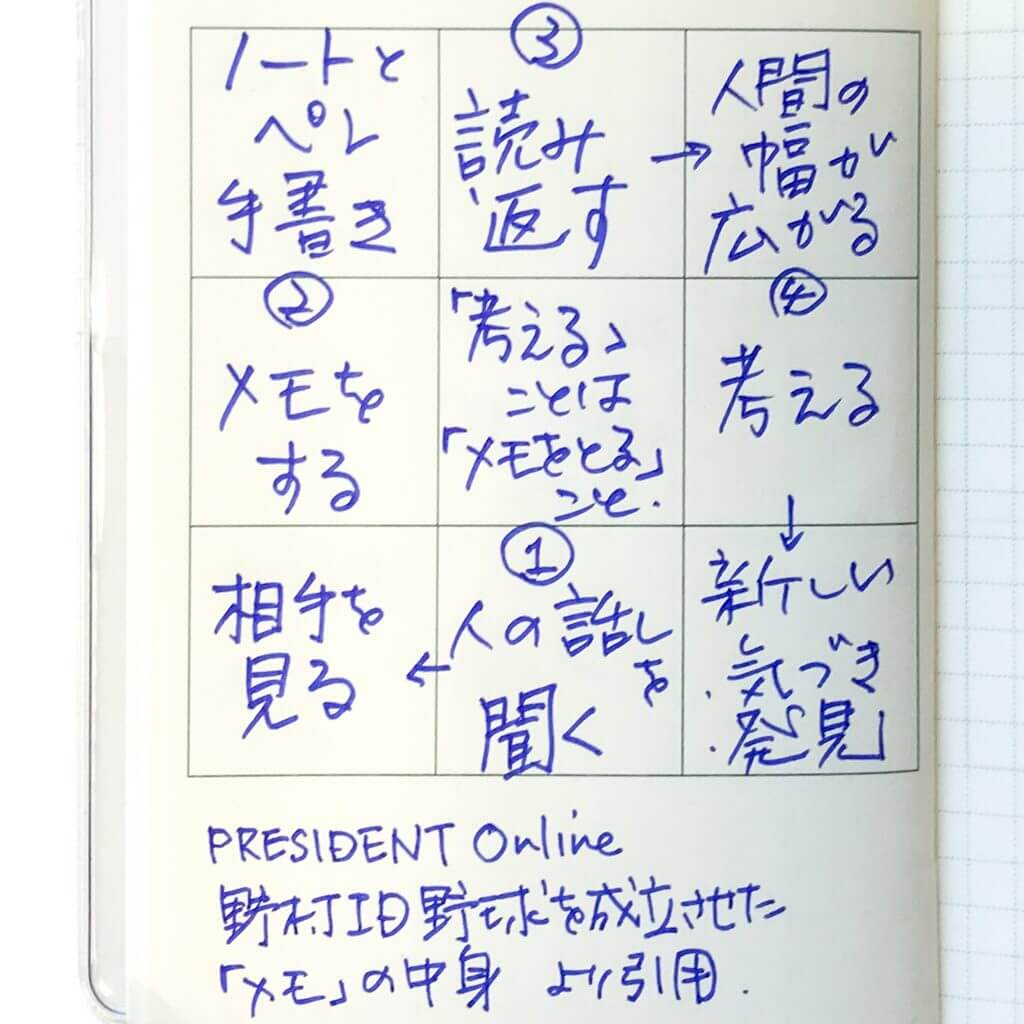 ノートと
ペン
手書き
③
読み
返す
→
人間の
幅が
広がる
②
メモを
する
「考える」
ことは
「メモをとる」
こと.
④
考える
↓
相手を
見る
①
人の話しを
←
聞く
新しい
・気づき
・発見
PRESIDENT Online
野村ID野球を成立させた
「メモ」の中身 より引用.